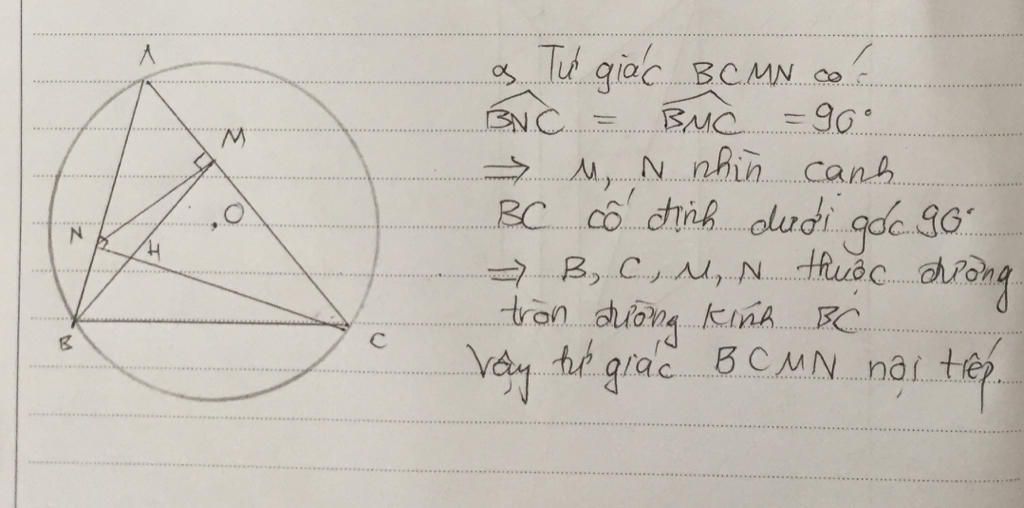 A
M
O
N
H
B
C
a) Tứ giác BCMN có:
BNC = BMC = 90°
=> M, N nhìn cạnh
BC cố định dưới góc 90°
=> B, C, M, N thuộc đường
tròn đường kính BC
Vậy tứ giác BCMN nội tiếp.